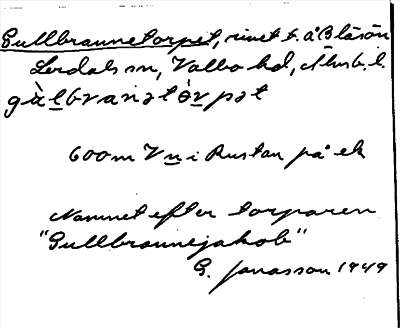 Gullbrannetorpet, rivet t. å Blåsån
Lerdals sn, Valbo hd, Älvsb. l.
gàlbranətòrpət
600 m V n i Rustan på ek
Namnet efter torparen
"Gullbrannejakob"
G. Jonasson 1949